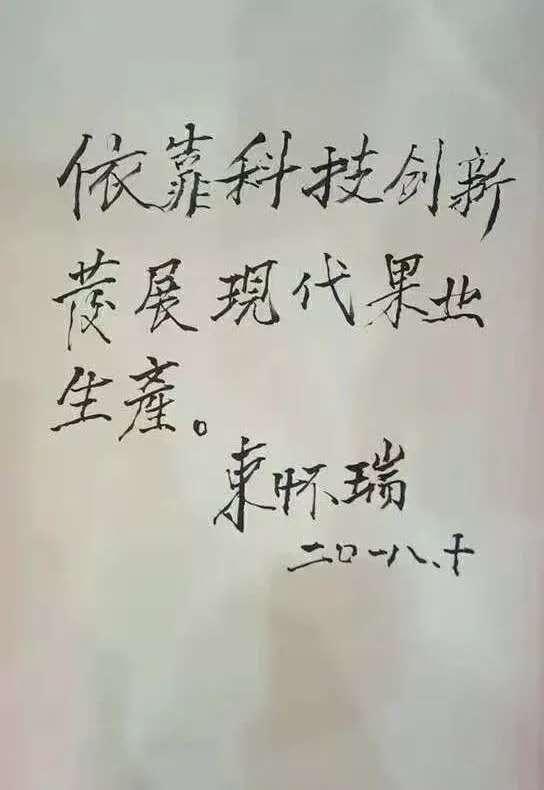 依靠科技创新
發展現代果业
生產。
束怀瑞
二〇一八、十